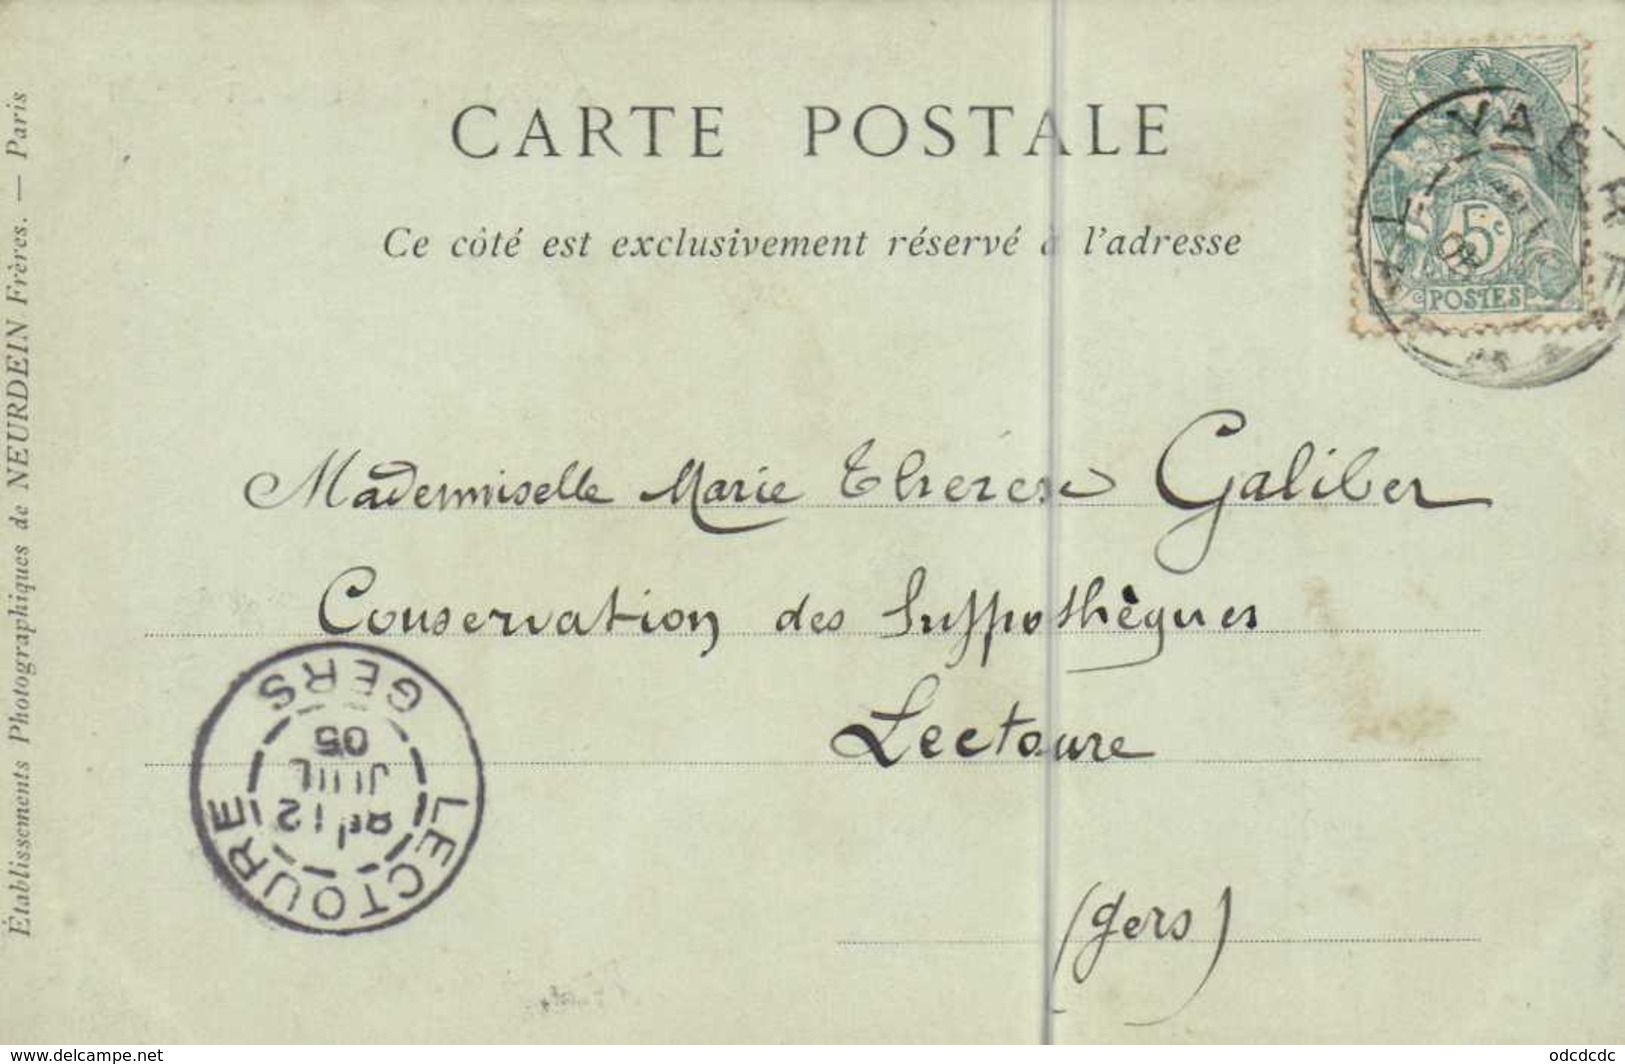 CARTE POSTALE
Ce côté est exclusivement réservé à l'adresse
5c
POSTES
Mademoiselle Marie Therese Galiber
Conservation des
Lectoure
(Gers)
LECTOURE
12
JUIL
05
GERS
Établissements Photographiques de NEURDEIN Frères. — Paris
www.delcampe.net
odcdcdc